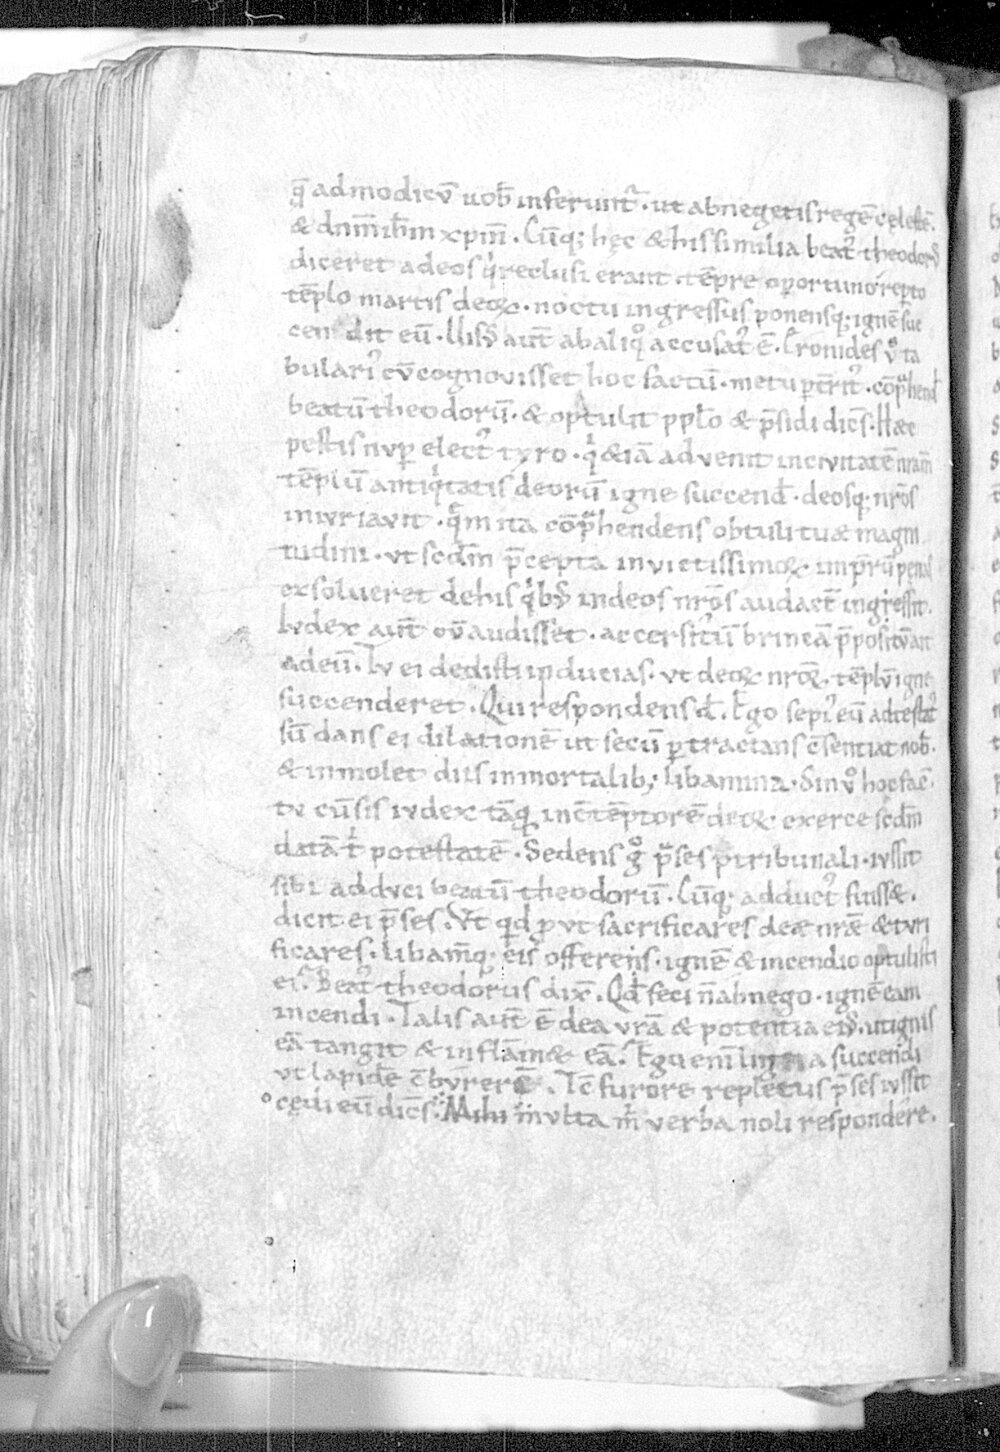 quę ad modicū uob̄ inferunt᷑ · ut abnegetis regē cęlestē ·
& dn̄m ih̄m xp̄m . Cūq; hęc & his similia beat᷒ theodor᷒
diceret ad eos qͥ reclusi erant · tēpre oportuno repto
tēplo martis deoꝝ · noctu ingressus ponensq; ignē suc
cendit eū · Uis᷒ aut̄ ab aliqͦ accusat᷒ ē . Cronides vͦ ta
bulari᷒ cū cognovisset hoc factū · metu pterrit᷒ · cōpͣhend̄
beatū theodorū · & optulit pplo & p̄sidi dic̄s · Hæc
pestis nup elect᷒ tyro · qͥ & iā advenit in civitatē nr̄am
tēplū antiqͥtatis deorū igne succend̄ · deosq; nr̄os
iniuriavit · quē m̄ ita cōpͣhendens obtuli tuæ magni
tudini · ut scd̄m p̄cepta invictissimoꝝ · impr̄ū penas
exsolueret de his qͥb᷒ in deos nr̄os audact̄ ingressit .
Iudex aut̄ cū audisset · accersitū brincā p̄positū ait
ad eū . Tu ei dedisti inducias · ut deoꝝ nr̄oꝝ · tēplū igne
succenderet . Qui respondens d̄ . Ego sepi᷒ eū adtestat᷒
sū dans ei dilationē ut secū ptractans c̄sentiat nob̄ ·
& inmolet diis inmortalib; libamina · Si nͦ hoc fac̄ ·
tu cū sis iudex tāq inc̄tēptorē deoꝝ exerce scd̄m
datā tͥ potestatē . Sedens gͦ p̄ses p tribunali · iussit
sibi adduci beatū theodorū . Cūq; adduct᷒ fuisset .
dicit ei p̄ses . Ut qͥd p ut sacrificares deæ nr̄æ & turi
ficares · libam̄q; eis offerens · ignē & incendio optulisti
ei . Beat᷒ theodorus dix̄ . Qd̄ feci n̄ abnego · ignē eam
incendi . Talis aut̄ ē dea vr̄a & potentia ei᷒ · ut ignis
eā tangit & inflāmæ eā . Ego eni succendi
ut lapidē c̄burere . Tc̄ furore repletus p̄ses iussit
cędi eū dic̄s . Mihi multa m̄ verba noli respondere .